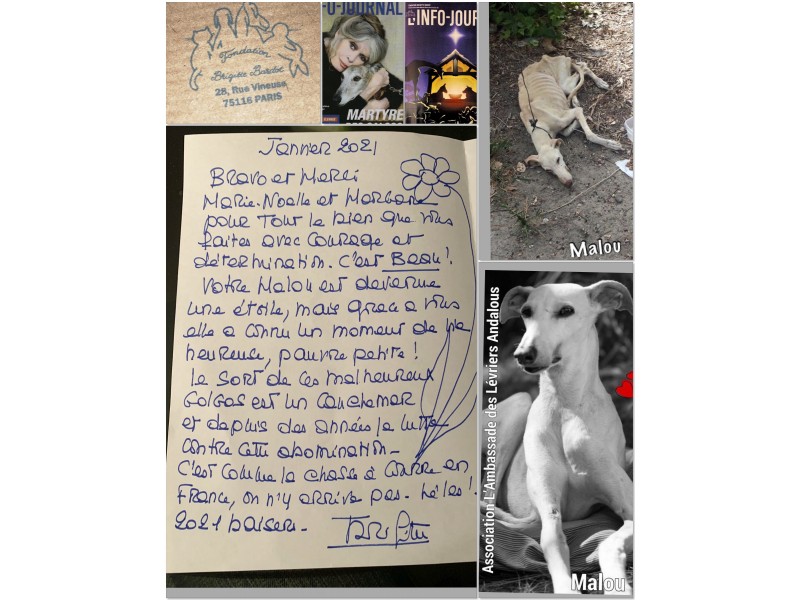 Fondation
Brigitte Bardot
28, Rue Vineuse
75116 PARIS
U-JOURNAL
MARTYRE
L'INFO-JOUR
Malou
Janvier 2021
Bravo et Merci
Marie-Noelle et
pour tout le bien que vous
faites avec courage et
détermination. C'est Beau !
Votre Malou est devenue
une étoile, mais grace a vous
elle a connu un moment de vie
heureuse, pauvre petite !
Le sort de ces malheureux
Galgos est un cauchemar
et depuis des années je lutte
contre cette abomination -
C'est comme la chasse à courre en
France, on n'y arrive pas - hélas !
2021 baisers -
Association L'Ambassade des Lévriers Andalous
Malou